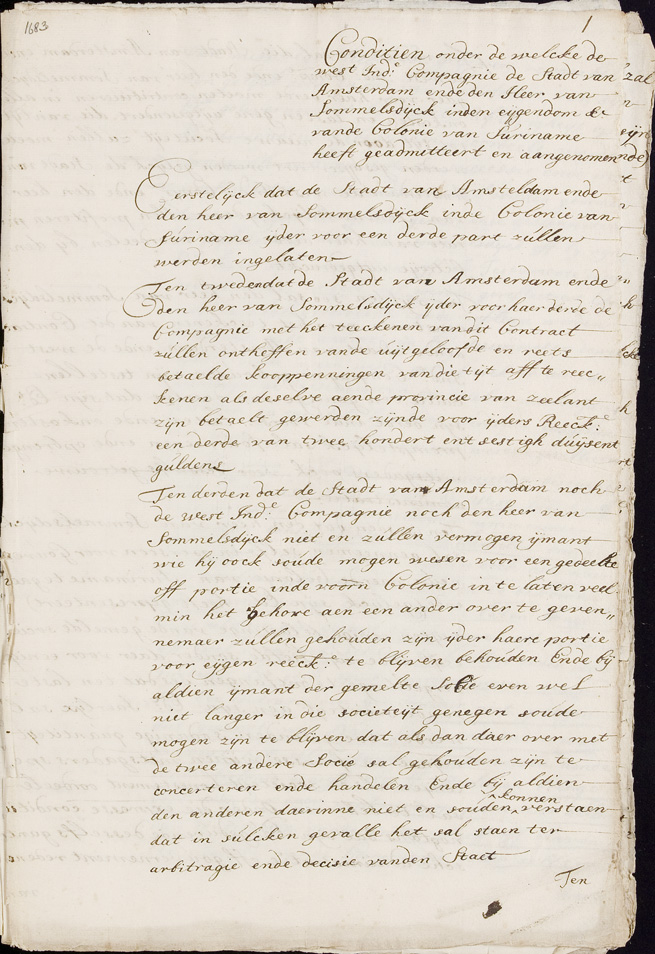 1683
1
Conditien onder de welcke de
west Ind.e Compagnie de Stadt van
Amsterdam ende den Heer van
Sommelsdijck inden eijgendom &
vande Colonie van Suriname
heeft geadmitteert en aangenomen
Eerstelijck dat de Stadt van Amsteldam ende
den heer van Sommelsdijck inde Colonie van
Suriname ijder voor een derde part zullen
werden ingelaten
Ten tweden dat de Stadt van Amsterdam ende
den heer van Sommelsdijck ijder voor haer derde de
Compagnie met het teeckenen van dit Contract
zullen ontheffen vande uijtgeloofde en reets
betaelde kooppenningen van die tijt aff te reec„
kenen als deselve aende provincie van zeelant
zijn betaelt gewerden zijnde voor ijders Reeck:e
een derde van twee hondert ent sestigh duijsent
guldens
Ten derden dat de Stadt van Amsterdam noch
de west Ind.e Compagnie noch den heer van
Sommelsdijck niet en zullen vermogen ijmant
wie hij oock soude mogen wesen voor een gedeelte
off portie inde voorn Colonie in te laten veel
min het gehore aen een ander over te geven„
nemaer zullen gehouden zijn ijder haere portie
voor eijgen reeck: te blijven behouden Ende bij
aldien ijmant der gemelte Socie even wel
niet langer in die societeijt genegen soude
mogen zijn te blijven dat als dan daer over met
de twee andere Socie sal gehouden zijn te
concerteren ende handelen Ende bij aldien
den anderen daerinne niet en souden konnen verstaen
dat in sulcken gevalle het sal staen ter
arbitragie ende decisie vanden Staet
Ten